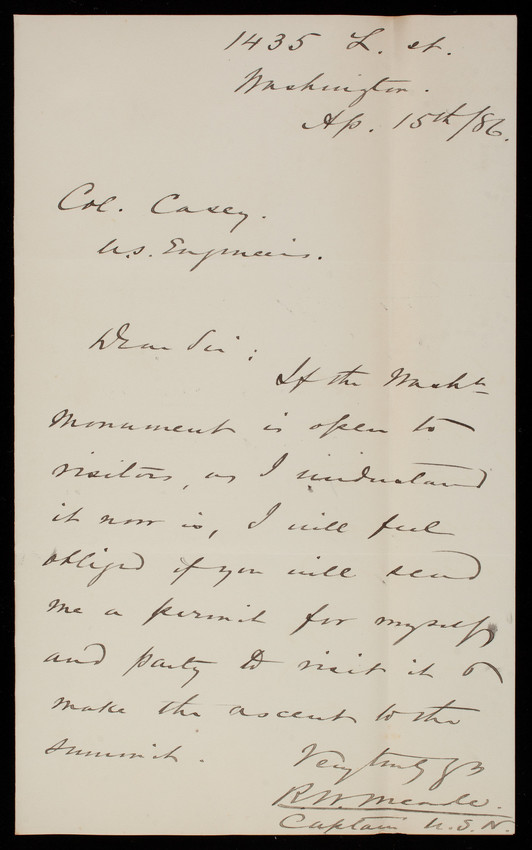 1435 L. st.
Washington.
Ap. 15th/86.
Col. Casey.
U.S. Engineers.
Dear Sir:
If the Washtn
Monument is open to
visitors, as I understand
it now is, I will feel
obliged if you will send
me a permit for myself
and party to visit it &
make the ascent to the
summit.
Very truly yrs
R. W. Meade.
Captain U.S.N.